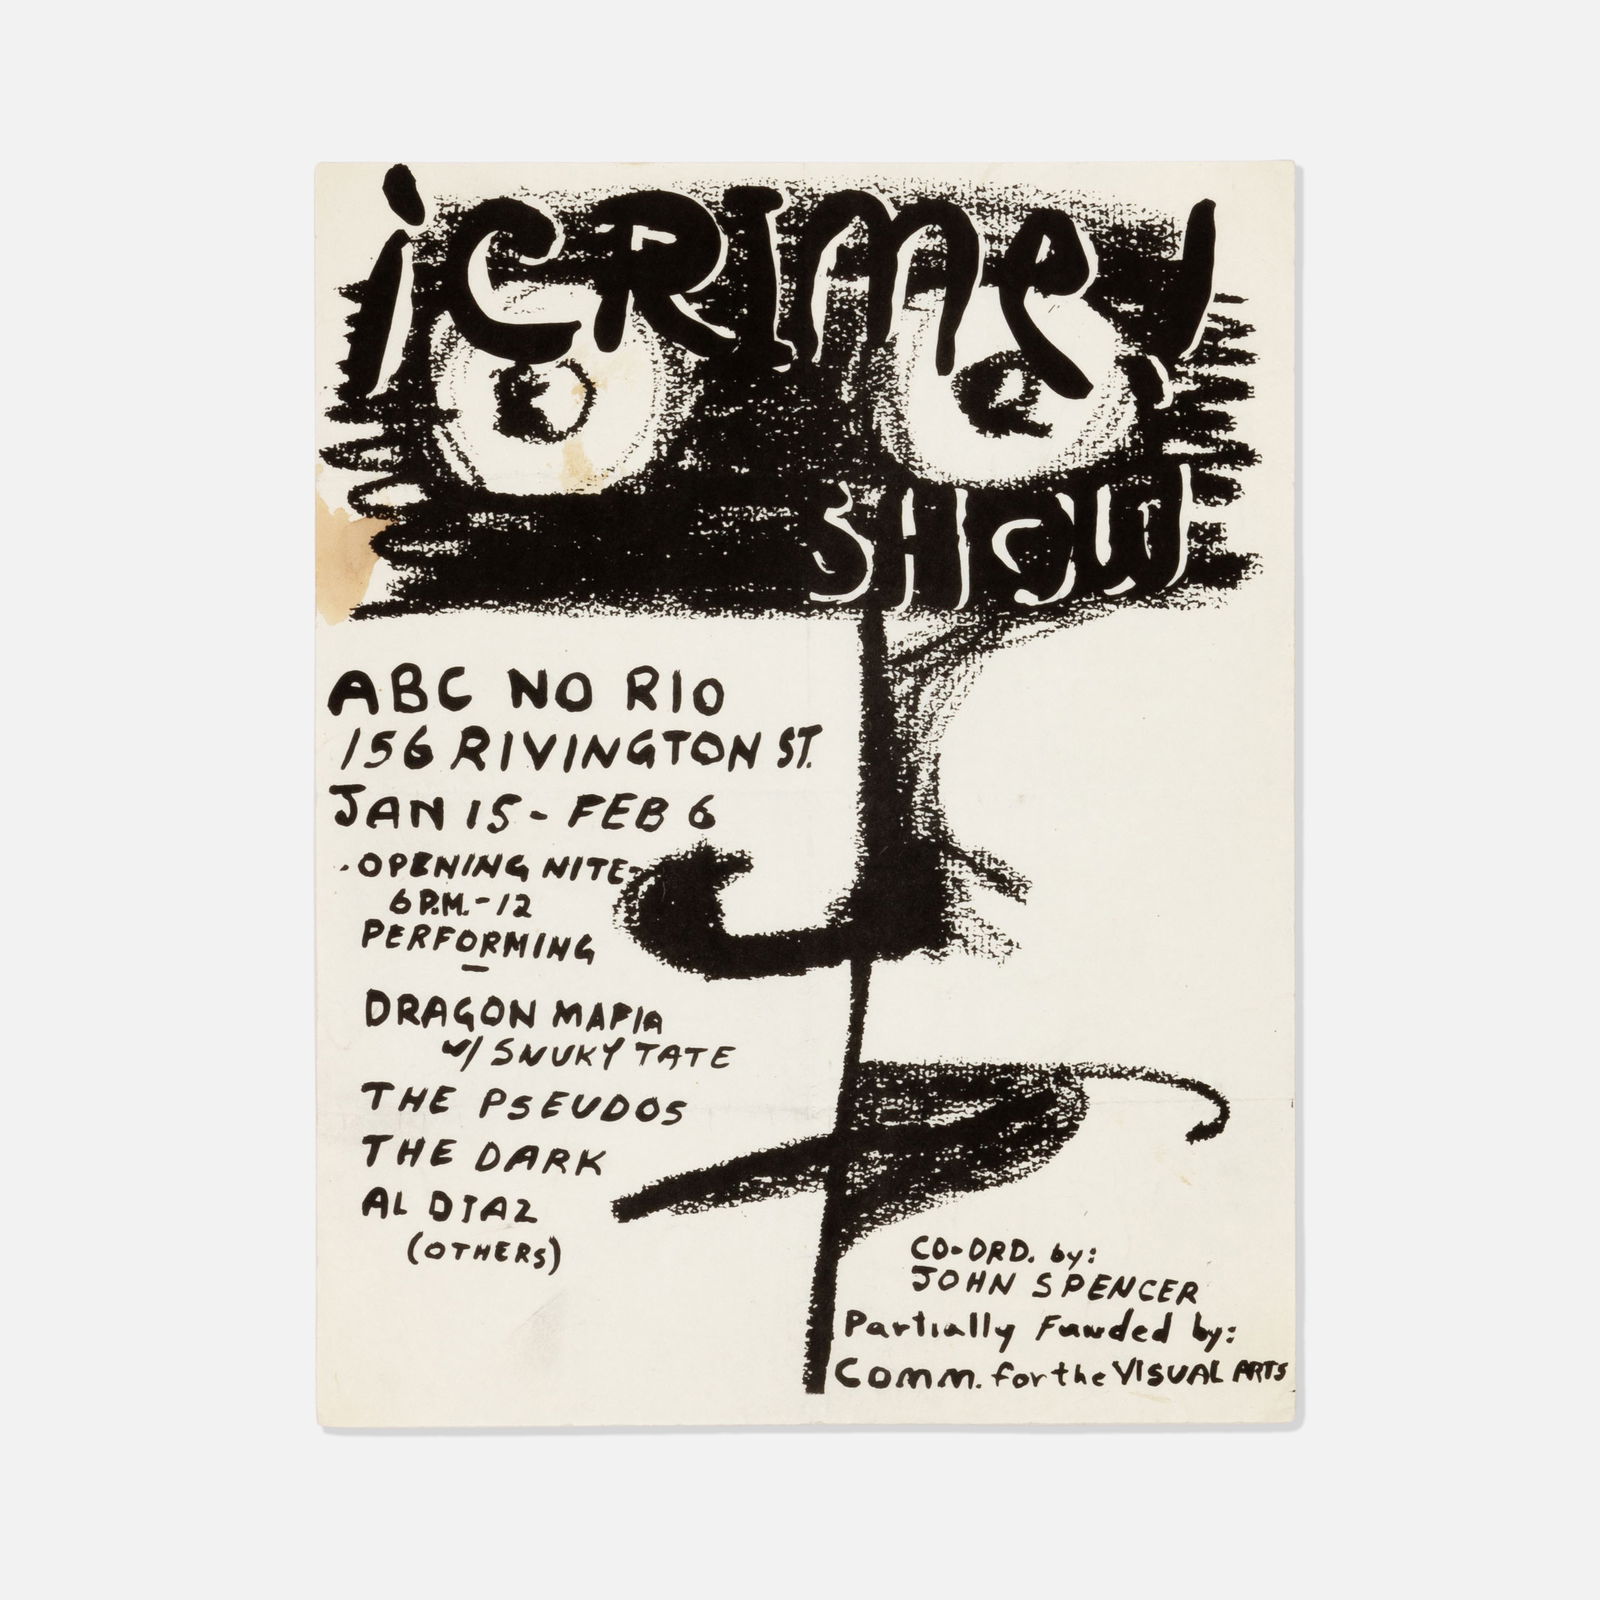 ¡CRIME!
SHOW
ABC NO RIO
156 RIVINGTON ST.
JAN 15 - FEB 6
·OPENING NITE-
6 P.M. - 12
PERFORMING
DRAGON MAFIA
w/ SNUKY TATE
THE PSEUDOS
THE DARK
AL DIAZ
(OTHERS)
CO-ORD. by:
JOHN SPENCER
Partially Funded by:
Comm. for the VISUAL ARTS